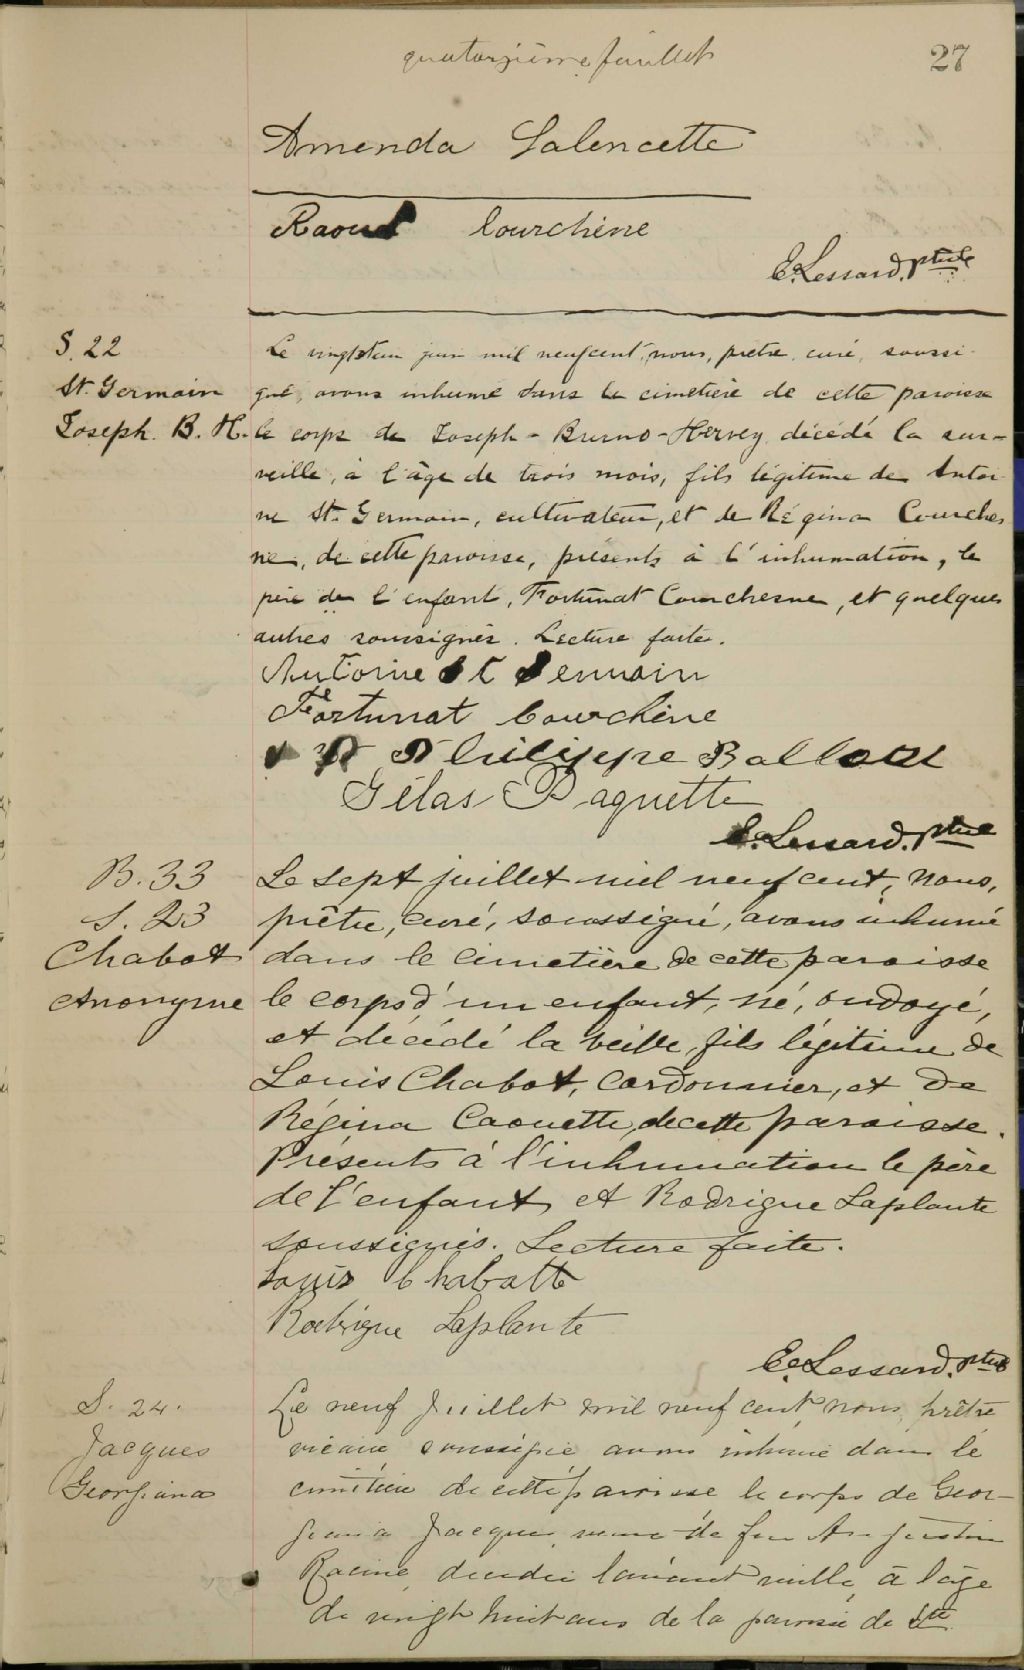 quatorzième feuillet
27
Amenda Salencette
Raoul Courchène
E. Lessard. ptre
S. 22
St. Germain
Joseph. B. H.
Le vingt et un juin mil neufcent, nous, prêtre, curé, soussi-
gné, avons inhumé dans le cimetière de cette paroisse
le corps de Joseph-Bruno-Hervey décédé la sur-
veille, à l'âge de trois mois, fils légitime de Antoi
ne St. Germain, cultivateur, et de Régina Courches
ne, de cette paroisse, présents à l'inhumation, le
père de l'enfant, Fortunat Courchesne, et quelques
autres soussignés. Lecture faite.
Antoine St Germain
Fortunat Courchène
Philippe Ballou
Gélas Paquette
E. Lessard. ptre
B. 33
S. 23
Chabot
Anonyme
Le sept juillet mil neuf cent, nous,
prêtre, curé, soussigné, avons inhumé
dans le cimetière de cette paroisse
le corps d'un enfant, né, ondoyé,
et décédé la veille, fils légitime de
Louis Chabot, Cordonnier, et de
Régina Caouette, de cette paroisse.
Présents à l'inhumation le père
de l'enfant, et Rodrigue Laplante
soussignés. Lecture faite.
Louis Chabott
Rodrigue Laplante
E. Lessard. ptre
S. 24.
Jacques
Georgiana
Le neuf Juillet mil neuf cent, nous prêtre
vicaire soussigné avons inhumé dans le
cimetière de cette paroisse le corps de Geor-
giana Jacques, de feu
Racine, décédée l'avant veille, à l'age
de vingt huit ans de la paroisse de Ste